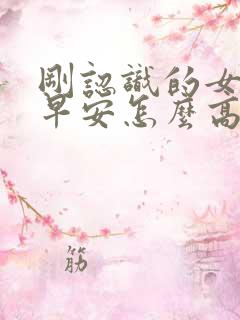 剛認識的女
早安怎麼高
筋